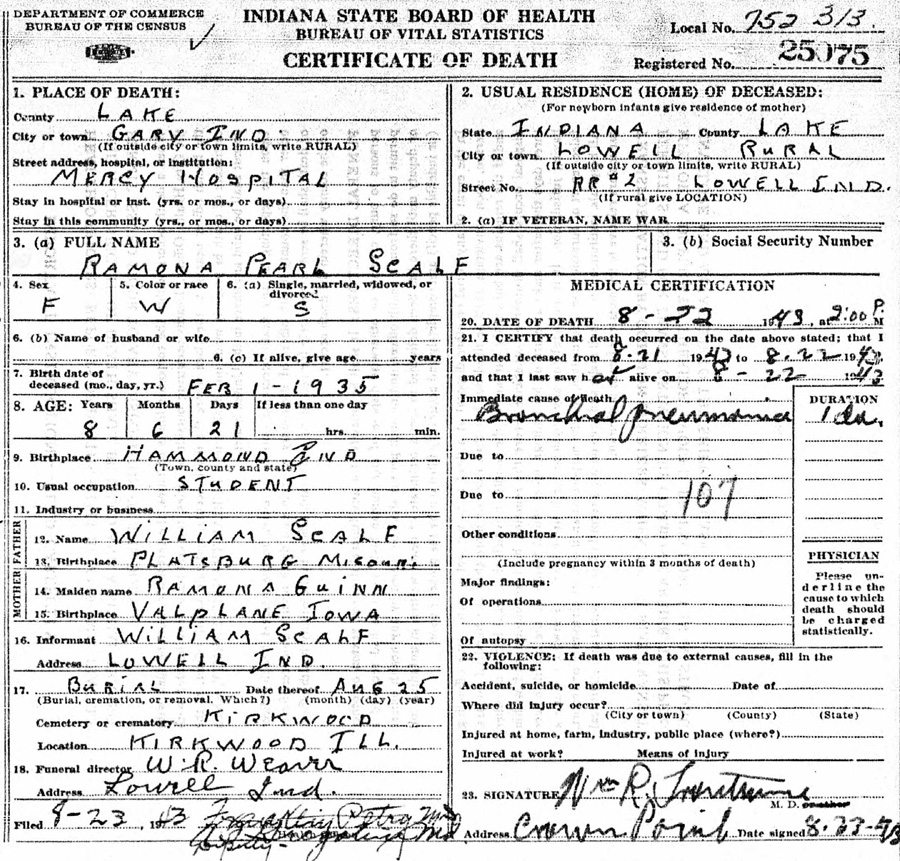 DEPARTMENT OF COMMERCE
BUREAU OF THE CENSUS
INDIANA STATE BOARD OF HEALTH
BUREAU OF VITAL STATISTICS
CERTIFICATE OF DEATH
Local No. 752 313.
Registered No. 25075
1. PLACE OF DEATH:
County LAKE
City or town GARY IND.
(If outside city or town limits, write RURAL)
Street address, hospital, or institution:
MERCY HOSPITAL
Stay in hospital or inst. (yrs. or mos., or days)
Stay in this community (yrs. or mos., or days)
2. USUAL RESIDENCE (HOME) OF DECEASED:
(For newborn infants give residence of mother)
State INDIANA County LAKE
City or town LOWELL RURAL
(If outside city or town limits, write RURAL)
Street No. RR#2 LOWELL IND.
(If rural give LOCATION)
2. (a) IF VETERAN, NAME WAR
3. (a) FULL NAME
RAMONA PEARL SCALF
3. (b) Social Security Number
4. Sex
F
5. Color or race
W
6. (a) Single, married, widowed, or divorced
S
6. (b) Name of husband or wife
6. (c) If alive, give age years
7. Birth date of
deceased (mo., day, yr.) FEB 1-1935
8. AGE: Years Months Days If less than one day
8 6 21 hrs. min.
9. Birthplace HAMMOND IND
(Town, county and state)
10. Usual occupation STUDENT
11. Industry or business
FATHER
12. Name WILLIAM SCALF
13. Birthplace PLATSBURG MISOURI
MOTHER
14. Maiden name RAMONA GUINN
15. Birthplace VALPLANE IOWA
16. Informant WILLIAM SCALF
Address LOWELL IND.
17. BURIAL Date thereof AUG 25
(Burial, cremation, or removal. Which?) (month) (day) (year)
Cemetery or crematory KIRKWOOD
Location KIRKWOOD ILL.
18. Funeral director W. R. WEAVER
Address Lowell Ind.
Filed 8-23 1943
MEDICAL CERTIFICATION
20. DATE OF DEATH 8-22 1943, at 2:00 P. M
21. I CERTIFY that death occurred on the date above stated; that I
attended deceased from 8-21 1943 to 8-22 1943
and that I last saw her alive on 8-22 1943
Immediate cause of death DURATION
Bronchial pneumonia 1 da.
Due to
Due to 107
Other conditions
(Include pregnancy within 3 months of death)
Major findings:
Of operations
Of autopsy
PHYSICIAN
Please un-
derline the
cause to which
death should
be charged
statistically.
22. VIOLENCE: If death was due to external causes, fill in the
following:
Accident, suicide, or homicide Date of
Where did injury occur?
(City or town) (County) (State)
Injured at home, farm, industry, public place (where?)
Injured at work? Means of injury
23. SIGNATURE Wm R.
M. D. or other
Address Crown Point Date signed 8-23-43